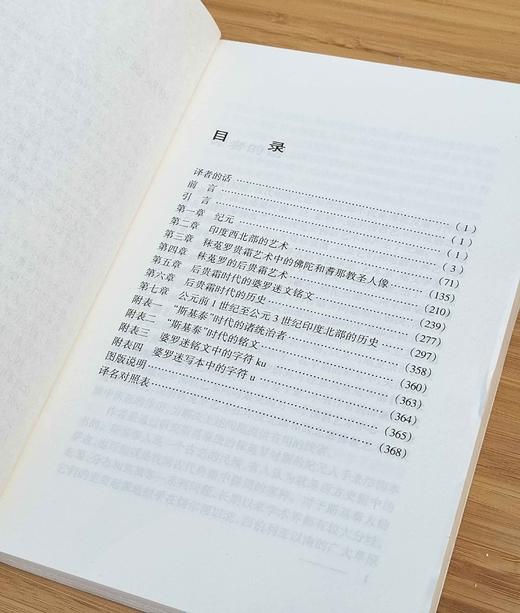 目 录
译者的话 (1)
前 言 (1)
引 言 (1)
第一章 纪元 (3)
第二章 印度西北部的艺术 (71)
第三章 秣菟罗贵霜艺术中的佛陀和耆那教圣人像 (135)
第四章 秣菟罗的后贵霜艺术 (210)
第五章 后贵霜时代的婆罗迷文铭文 (239)
第六章 后贵霜时代的历史 (277)
第七章 公元前1世纪至公元3世纪印度北部的历史 (297)
附表一 “斯基泰”时代的诸统治者 (358)
附表二 “斯基泰”时代的铭文 (360)
附表三 婆罗迷铭文中的字符 ku (363)
附表四 婆罗迷写本中的字符 u (364)
图版说明 (365)
译名对照表 (368)